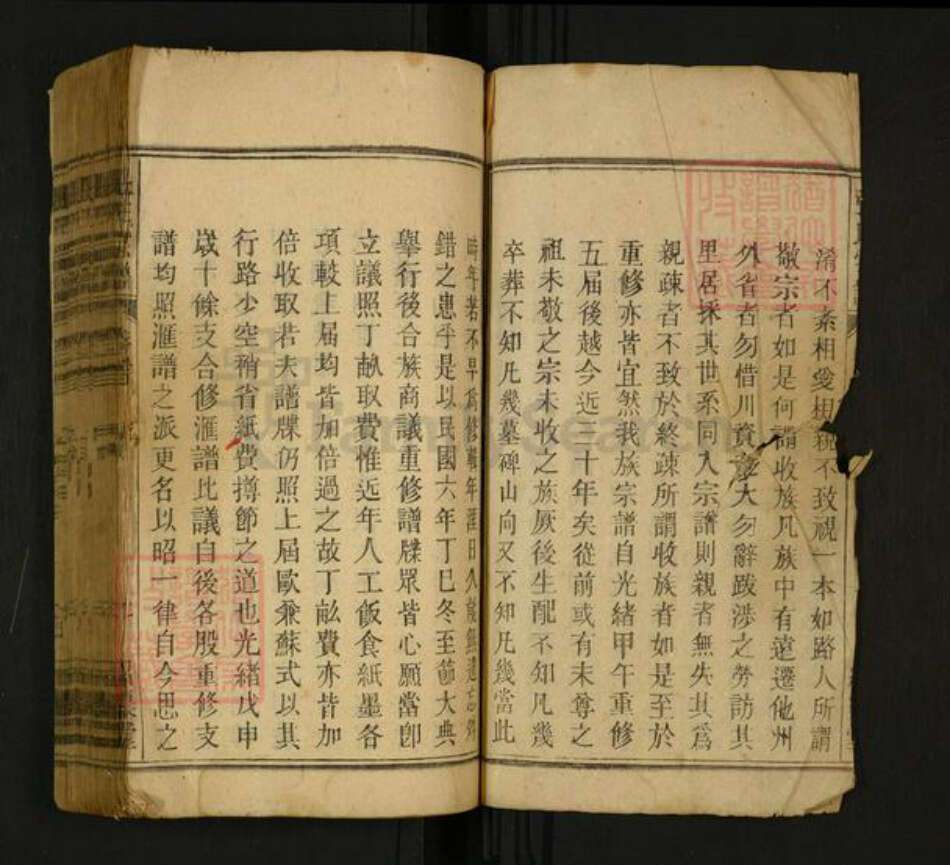 淆不紊相愛相親不致視一本如路人所謂
敬宗者如是何謂收族凡族中有遠遷他州
外省者勿惜川資大勿辭跋涉之勞訪其
里居採其世系同入宗譜則親者無失其為
親疎者不致於終疎所謂收族者如是至於
重修亦皆宜然我族宗譜自光緒甲午重修
五届後越今近三十年矣從前或有未尊之
祖未敬之宗未收之族厥後生配不知凡幾
卒葬不知凡幾墓碑山向又不知凡幾當此
時年若不早為修輯年湮日久能無遺忘
錯之患乎是以民國六年丁巳冬至節大典
舉行後合族商議重修譜牒眾皆心願當卽
立議照丁畝取費惟近年人工飯食紙墨各
項較上届均皆加倍過之故丁畝費亦皆加
倍收取若夫譜牒仍照上屆歐兼蘇式以其
行路少空稍省紙費撙節之道也光緒戊申
歲十餘支合修滙譜比議自後各股重修支
譜均照滙譜之派更名以昭一律自今思之